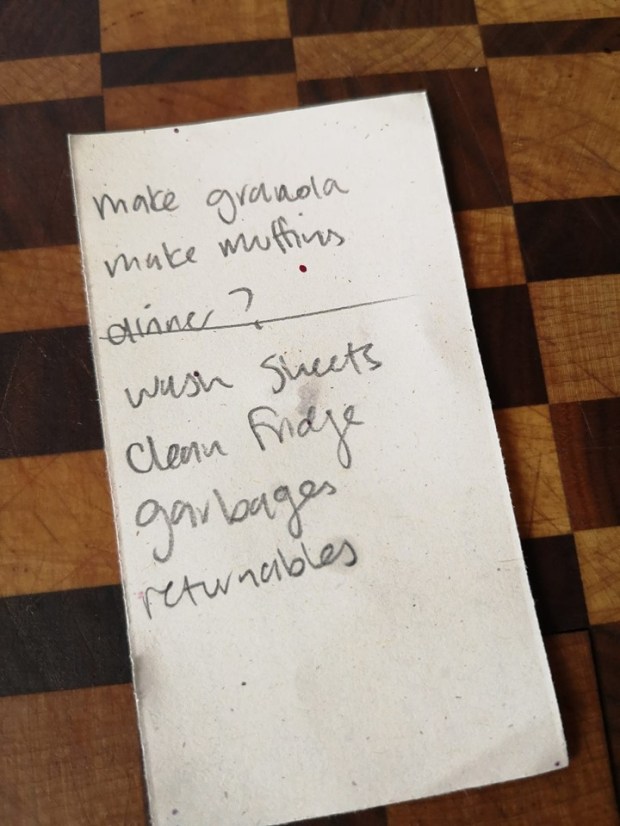 make granola
make muffins
dinner?
wash sheets
clean fridge
garbages
returnables